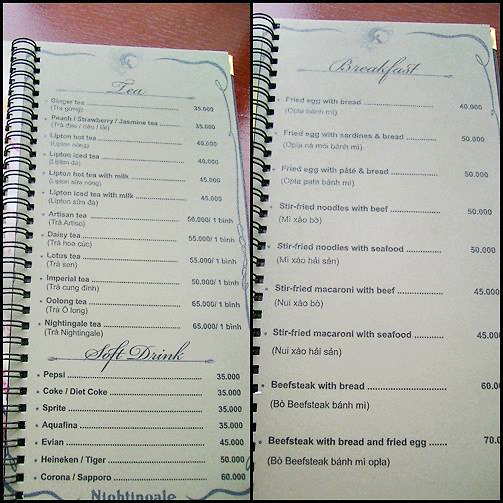 Tea
Ginger tea 35.000
(Trà gừng)
Peach / Strawberry / Jasmine tea 35.000
(Trà đào / dâu / lài)
Lipton hot tea 40.000
(Lipton nóng)
Lipton iced tea 40.000
(Lipton đá)
Lipton hot tea with milk 45.000
(Lipton sữa nóng)
Lipton iced tea with milk 45.000
(Lipton sữa đá)
Artisan tea 50.000/ 1 bình
(Trà Artiso)
Daisy tea 55.000/ 1 bình
(Trà hoa cúc)
Lotus tea 55.000/ 1 bình
(Trà sen)
Imperial tea 50.000/ 1 bình
(Trà cung đình)
Oolong tea 65.000/ 1 bình
(Trà Ô long)
Nightingale tea 65.000/ 1 bình
(Trà Nightingale)
Soft Drink
Pepsi 35.000
Coke / Diet Coke 35.000
Sprite 35.000
Aquafina 35.000
Evian 45.000
Heineken / Tiger 50.000
Corona / Sapporo 60.000
Nightingale
Breakfast
Fried egg with bread 40.000
(Opla bánh mì)
Fried egg with sardines & bread 50.000
(Opla cá mòi bánh mì)
Fried egg with pâté & bread 50.000
(Opla pate bánh mì)
Stir-fried noodles with beef 50.000
(Mì xào bò)
Stir-fried noodles with seafood 50.000
(Mì xào hải sản)
Stir-fried macaroni with beef 45.000
(Nui xào bò)
Stir-fried macaroni with seafood 45.000
(Nui xào hải sản)
Beefsteak with bread 60.0
(Bò Beefsteak bánh mì)
Beefsteak with bread and fried egg 70.0
(Bò Beefsteak bánh mì opla)